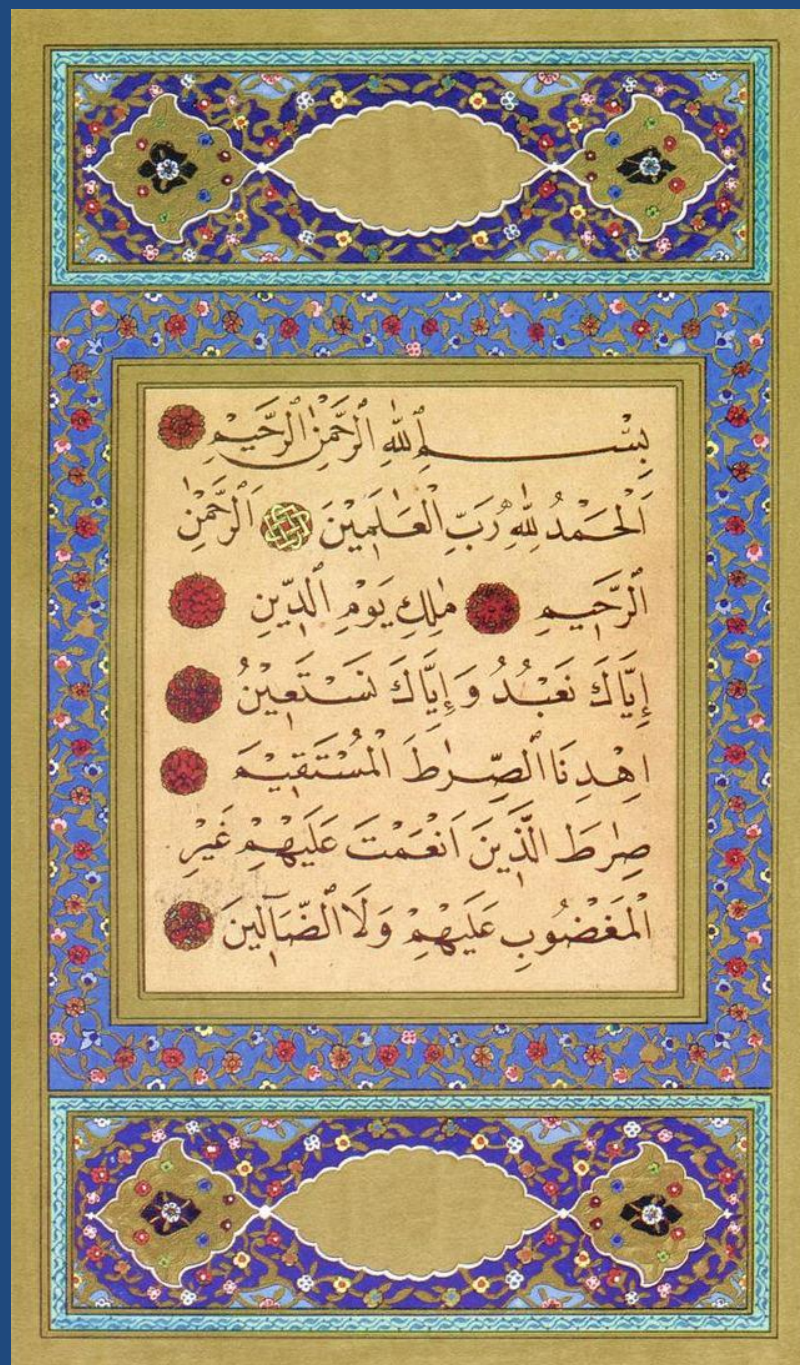 بِسْــــمِ ٱللّٰهِ ٱلرَّحْمٰنِ ٱلرَّحٖيمِ
اَلْحَمْدُ لِلّٰهِ رَبِّ ٱلْعَالَمٖينَ اَلرَّحْمٰنِ
ٱلرَّحٖيمِ مٰلِكِ يَوْمِ ٱلدّٖينِ
إِيَّاكَ نَعْبُدُ وَإِيَّاكَ نَسْتَعٖينُ
اِهْدِنَا ٱلصِّرٰطَ ٱلْمُسْتَقٖيمَ
صِرٰطَ ٱلَّذٖينَ اَنْعَمْتَ عَلَيْهِمْ غَيْرِ
ٱلْمَغْضُوبِ عَلَيْهِمْ وَلَا ٱلضَّٓالّٖينَ